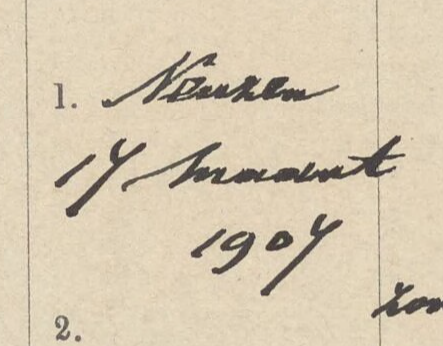 1. Neuzen
17 Maart
1907
zon
2.